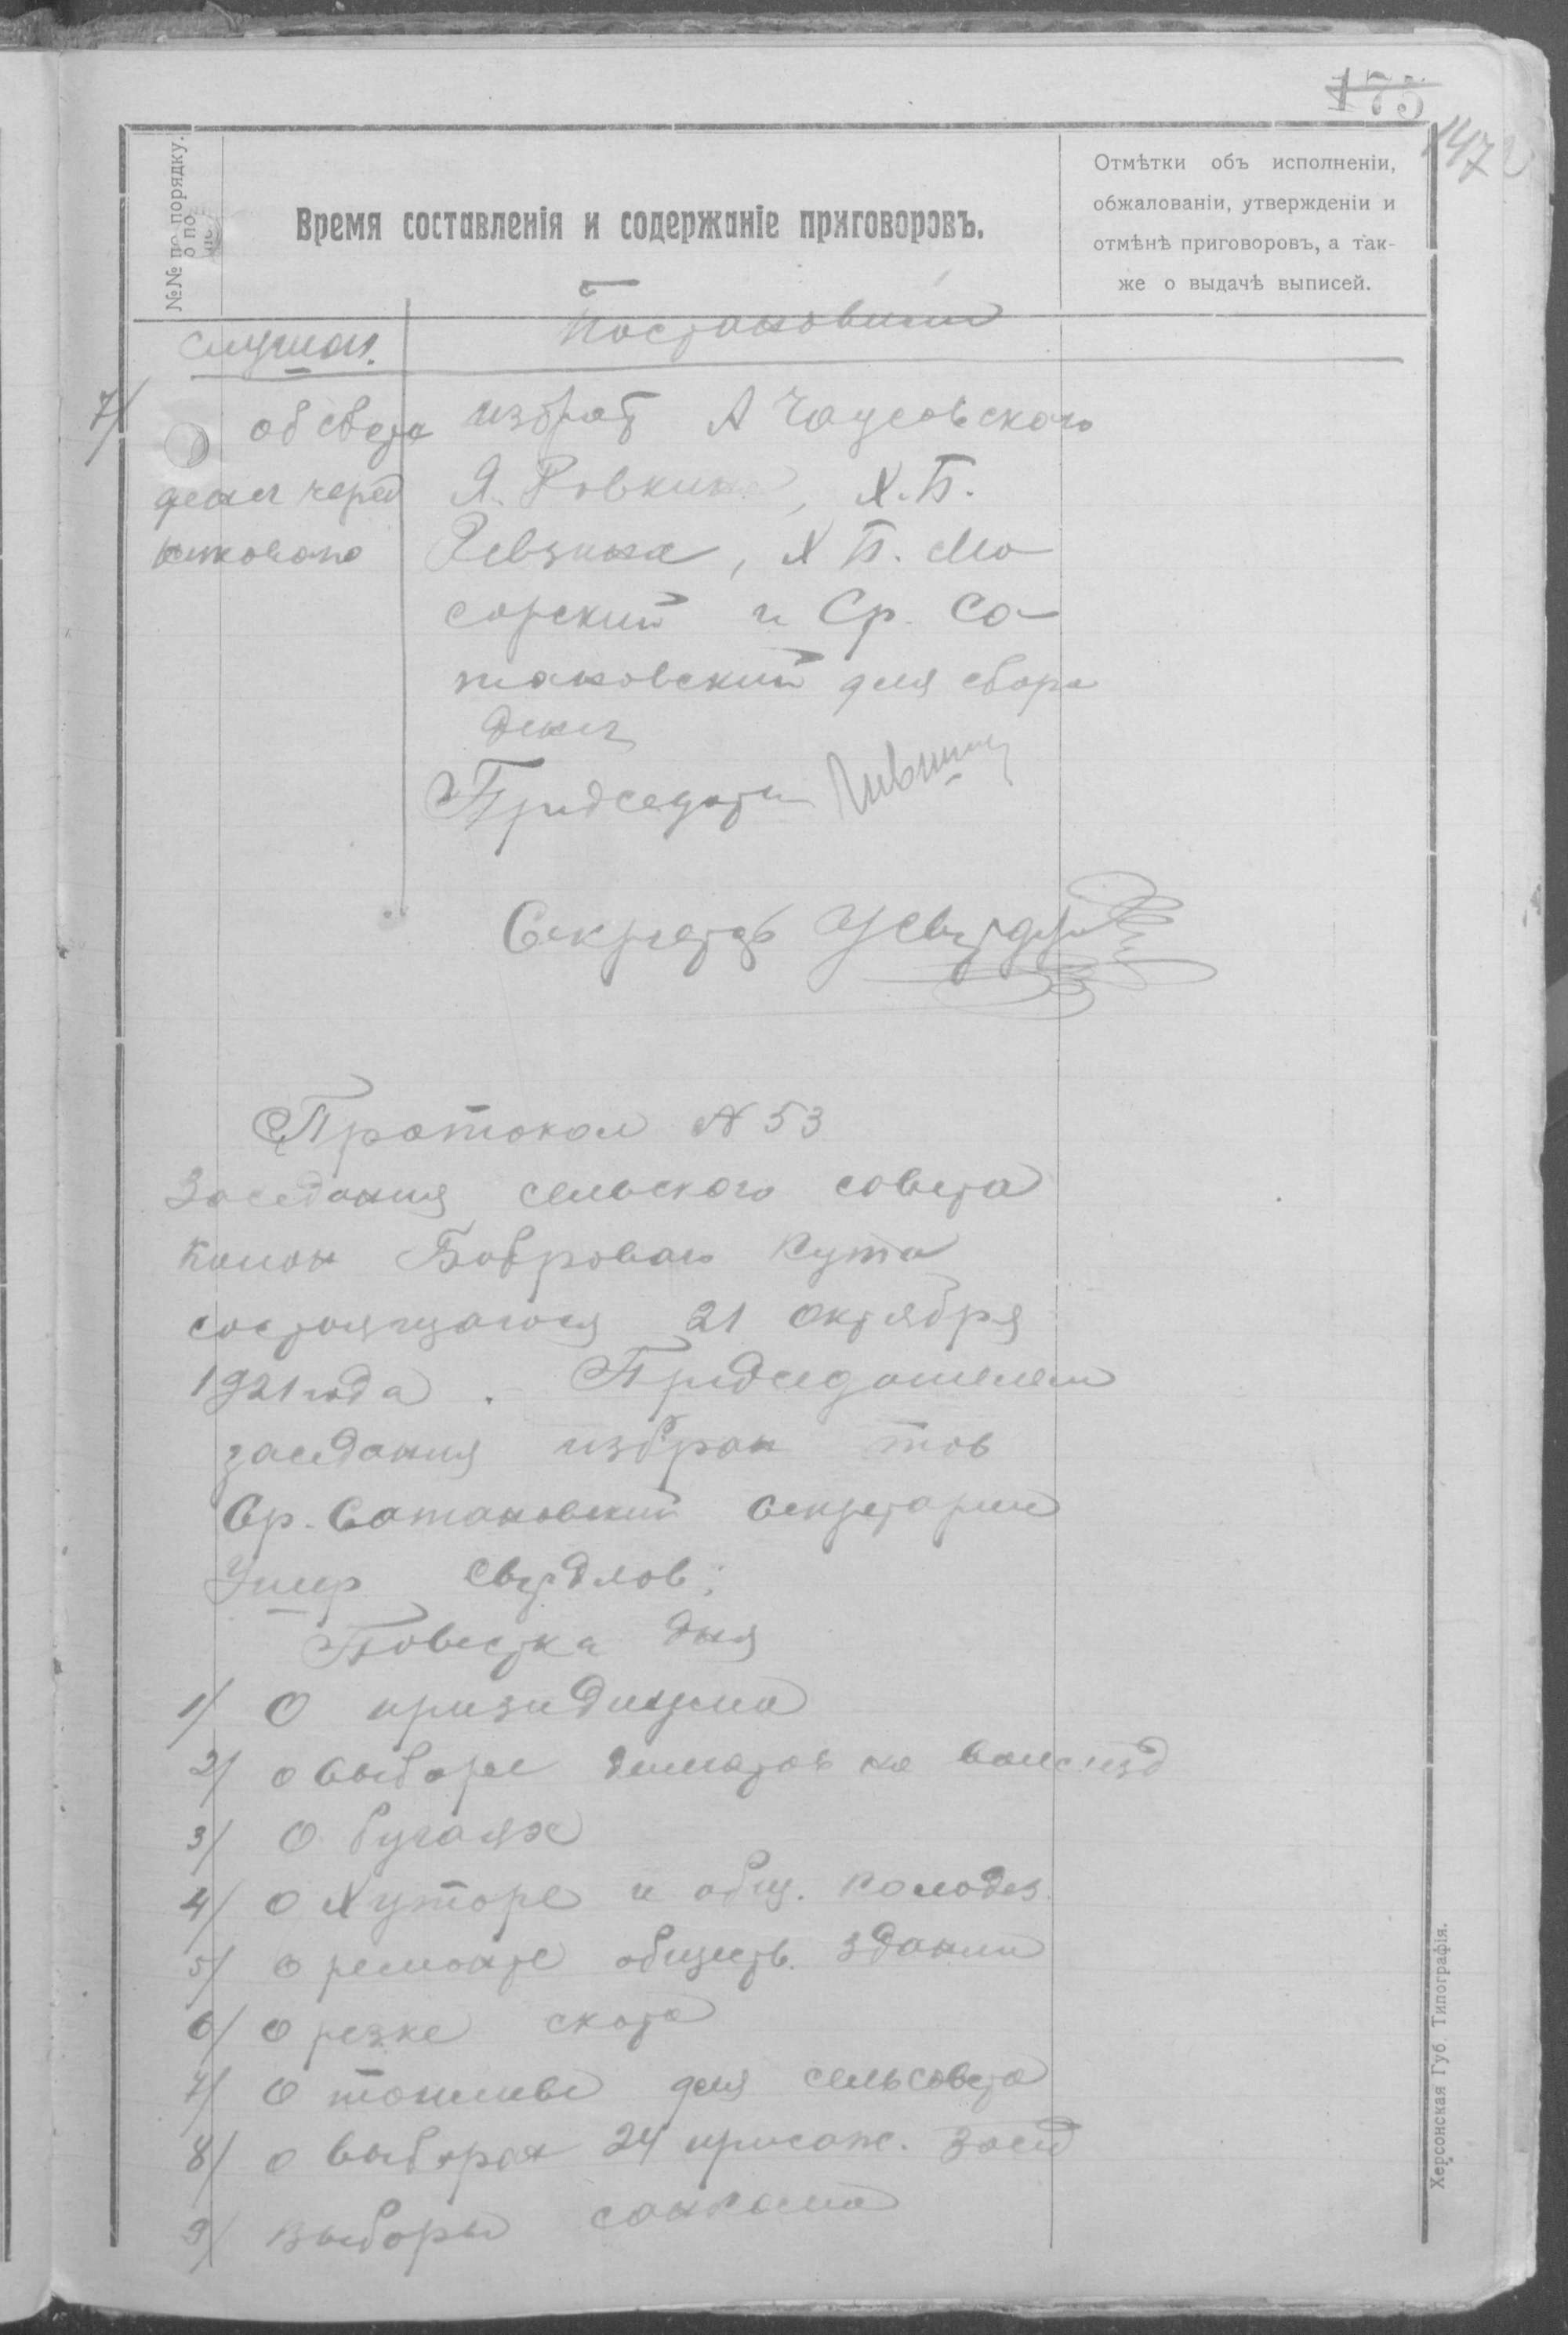 175
147
№№ по порядку.
Время составленія и содержаніе приговоровъ.
Отмѣтки объ исполненіи,
обжалованіи, утвержденіи и
отмѣнѣ приговоровъ, а так-
же о выдачѣ выписей.
Слушали.
Постановили
7/ об сборе
денег
избрат А Чаусовского
Я. Ровкина, Х.Б.
Ревзина, Х Б. Мо
сорский и Ср. Са
тановский для сбора
денег
Председатель
Секретарь
Протокол № 53
Заседания сельского совета
колон Боброваго Кута
состоящагося 21 октября
1921 года. Председателем
заседания избран тов
Ср. Сатановский Секретарем
Ушер Свердлов.
Повестка дня
1/ О призидиума
2/ о выборе делегатов на волсъезд
3/ О бугаях
4/ О Хуторе и общ. колодез.
5/ О ремонте обществ. здании
6/ О резке скота
7/ О топливе для сельсовета
8/ о выборах 24 присяж. засед
9/ Выборы санкома
Херсонская Губ. Типографія.